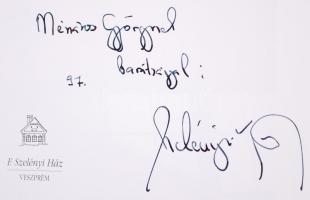 Mészáros Györgynek
barátsággal:
97.
Szelényi
F. Szelényi Ház
VESZPRÉM